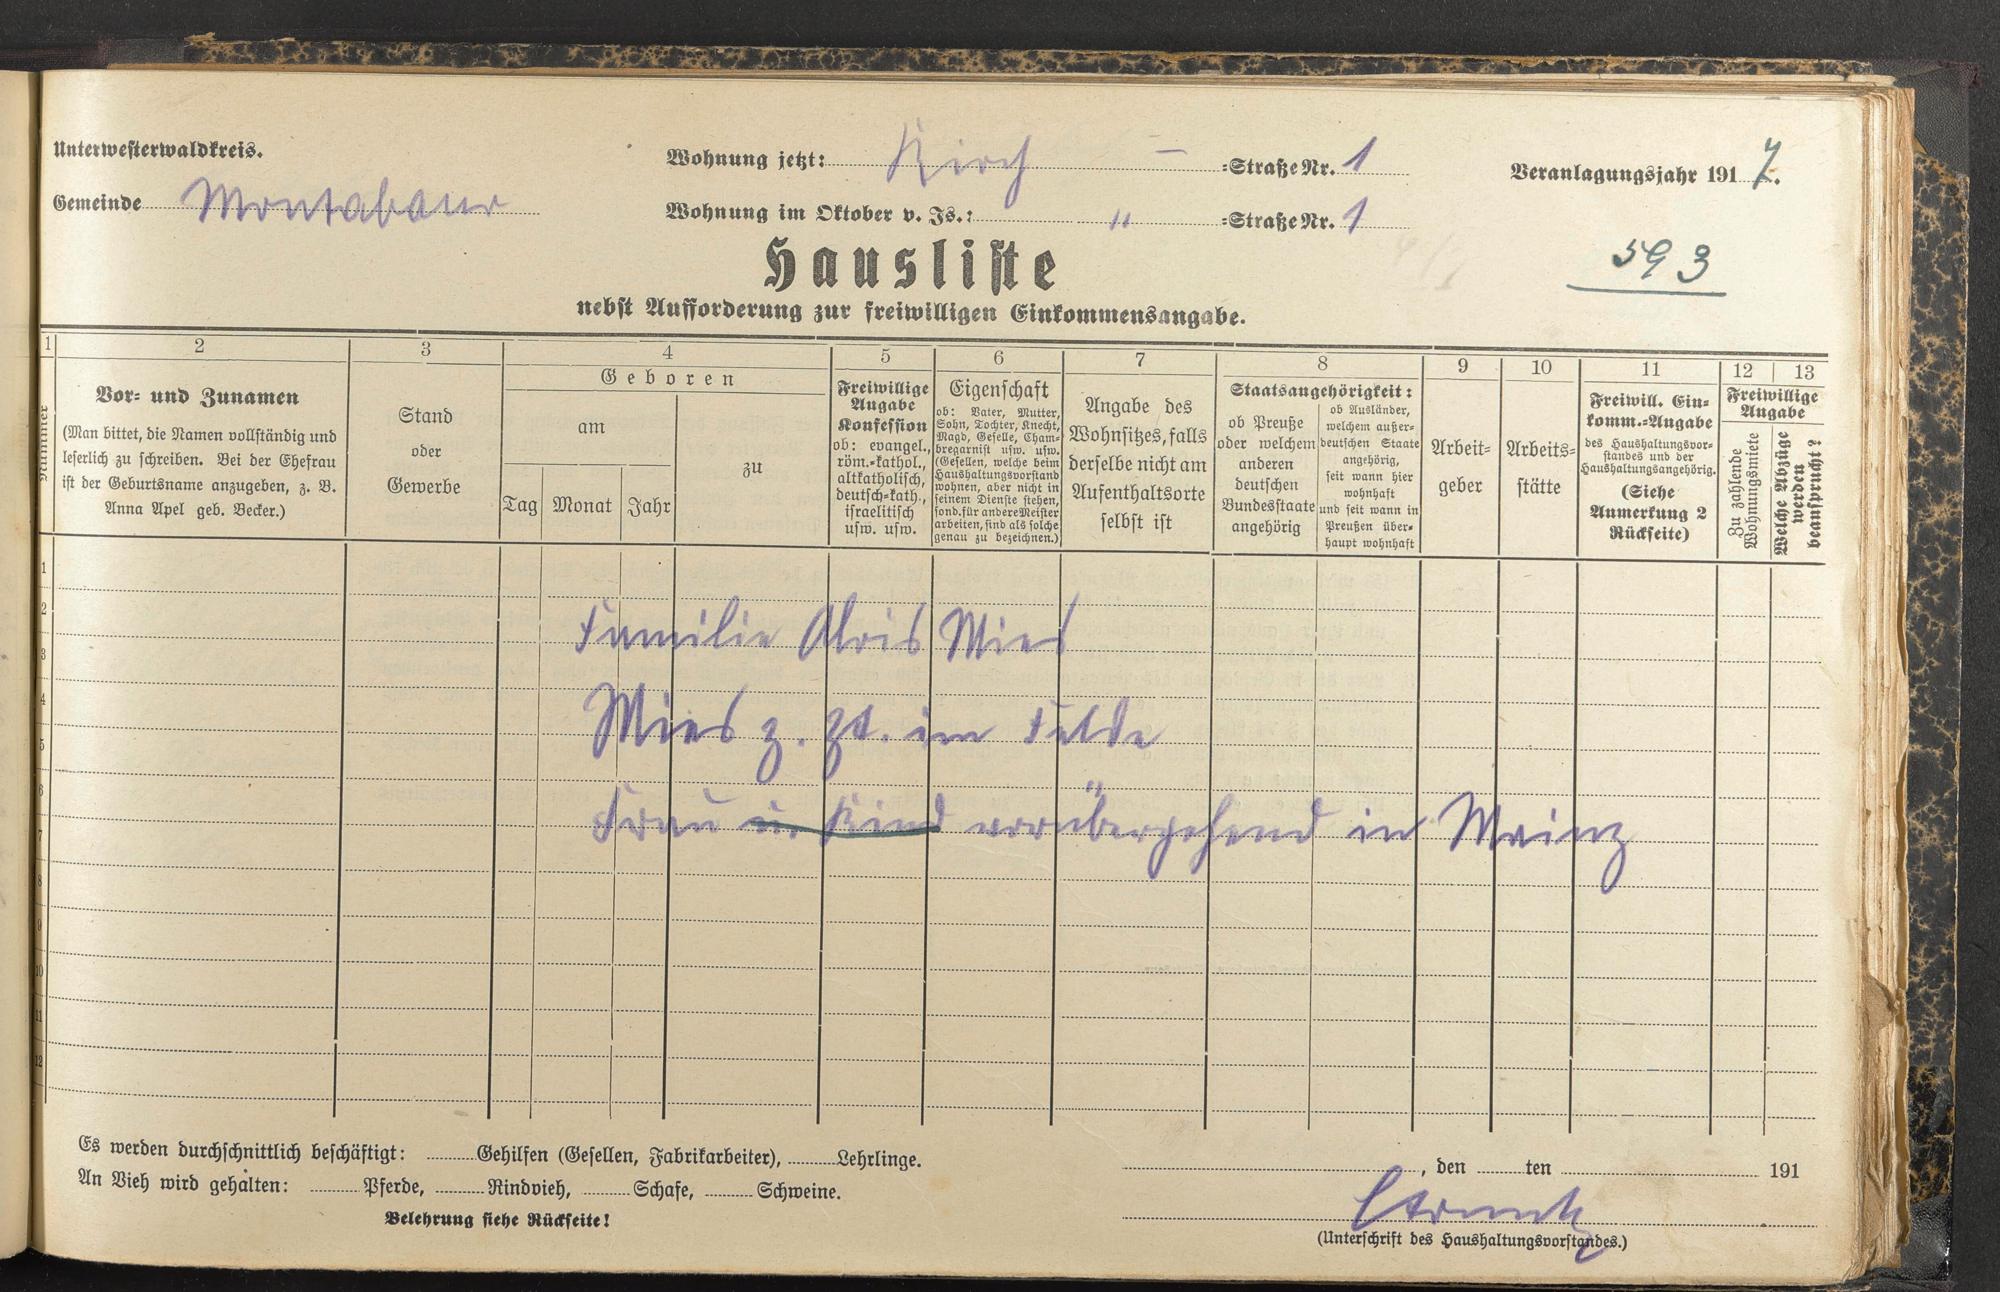 Unterwesterwaldkreis.
Gemeinde Montabaur
Wohnung jetzt: Kirch - =Straße Nr. 1
Wohnung im Oktober v. Js.: " =Straße Nr. 1
Veranlagungsjahr 1917.
593
Hausliste
nebst Aufforderung zur freiwilligen Einkommensangabe.
1 2 3 4 5 6 7 8 9 10 11 12 13
Nummer
Vor= und Zunamen
(Man bittet, die Namen vollständig und
leserlich zu schreiben. Bei der Ehefrau
ist der Geburtsname anzugeben, z. B.
Anna Apel geb. Becker.)
Stand
oder
Gewerbe
Geboren
am
Tag Monat Jahr
zu
Freiwillige
Angabe
Konfession
ob: evangel.,
röm.=kathol.,
altkatholisch,
deutsch=kath.,
israelitisch
usw. usw.
Eigenschaft
ob: Vater, Mutter,
Sohn, Tochter, Knecht,
Magd, Geselle, Cham=
bregarnist usw. usw.
(Gesellen, welche beim
Haushaltungsvorstand
wohnen, aber nicht in
seinem Dienste stehen,
sond. für andere Meister
arbeiten, sind als solche
genau zu bezeichnen.)
Angabe des
Wohnsitzes, falls
derselbe nicht am
Aufenthaltsorte
selbst ist
Staatsangehörigkeit:
ob Preuße
oder welchem
anderen
deutschen
Bundesstaate
angehörig
ob Ausländer,
welchem außer=
deutschen Staate
angehörig,
seit wann hier
wohnhaft
und seit wann in
Preußen über=
haupt wohnhaft
Arbeit=
geber
Arbeits=
stätte
Freiwill. Ein=
komm.=Angabe
des Haushaltungsvor=
standes und der
Haushaltungsangehörig.
(Siehe
Anmerkung 2
Rückseite)
Freiwillige
Angabe
Zu zahlende
Wohnungsmiete
Welche Abzüge
werden
beansprucht?
1
2
Familie Alois Mies
3
4
Mies z. Zt. im Felde
5
6
Frau u. Kind vorübergehend in Mainz
7
8
9
10
11
12
Es werden durchschnittlich beschäftigt: Gehilfen (Gesellen, Fabrikarbeiter), Lehrlinge.
An Vieh wird gehalten: Pferde, Rindvieh, Schafe, Schweine.
Belehrung siehe Rückseite!
, den ten 191
(Unterschrift des Haushaltungsvorstandes.)